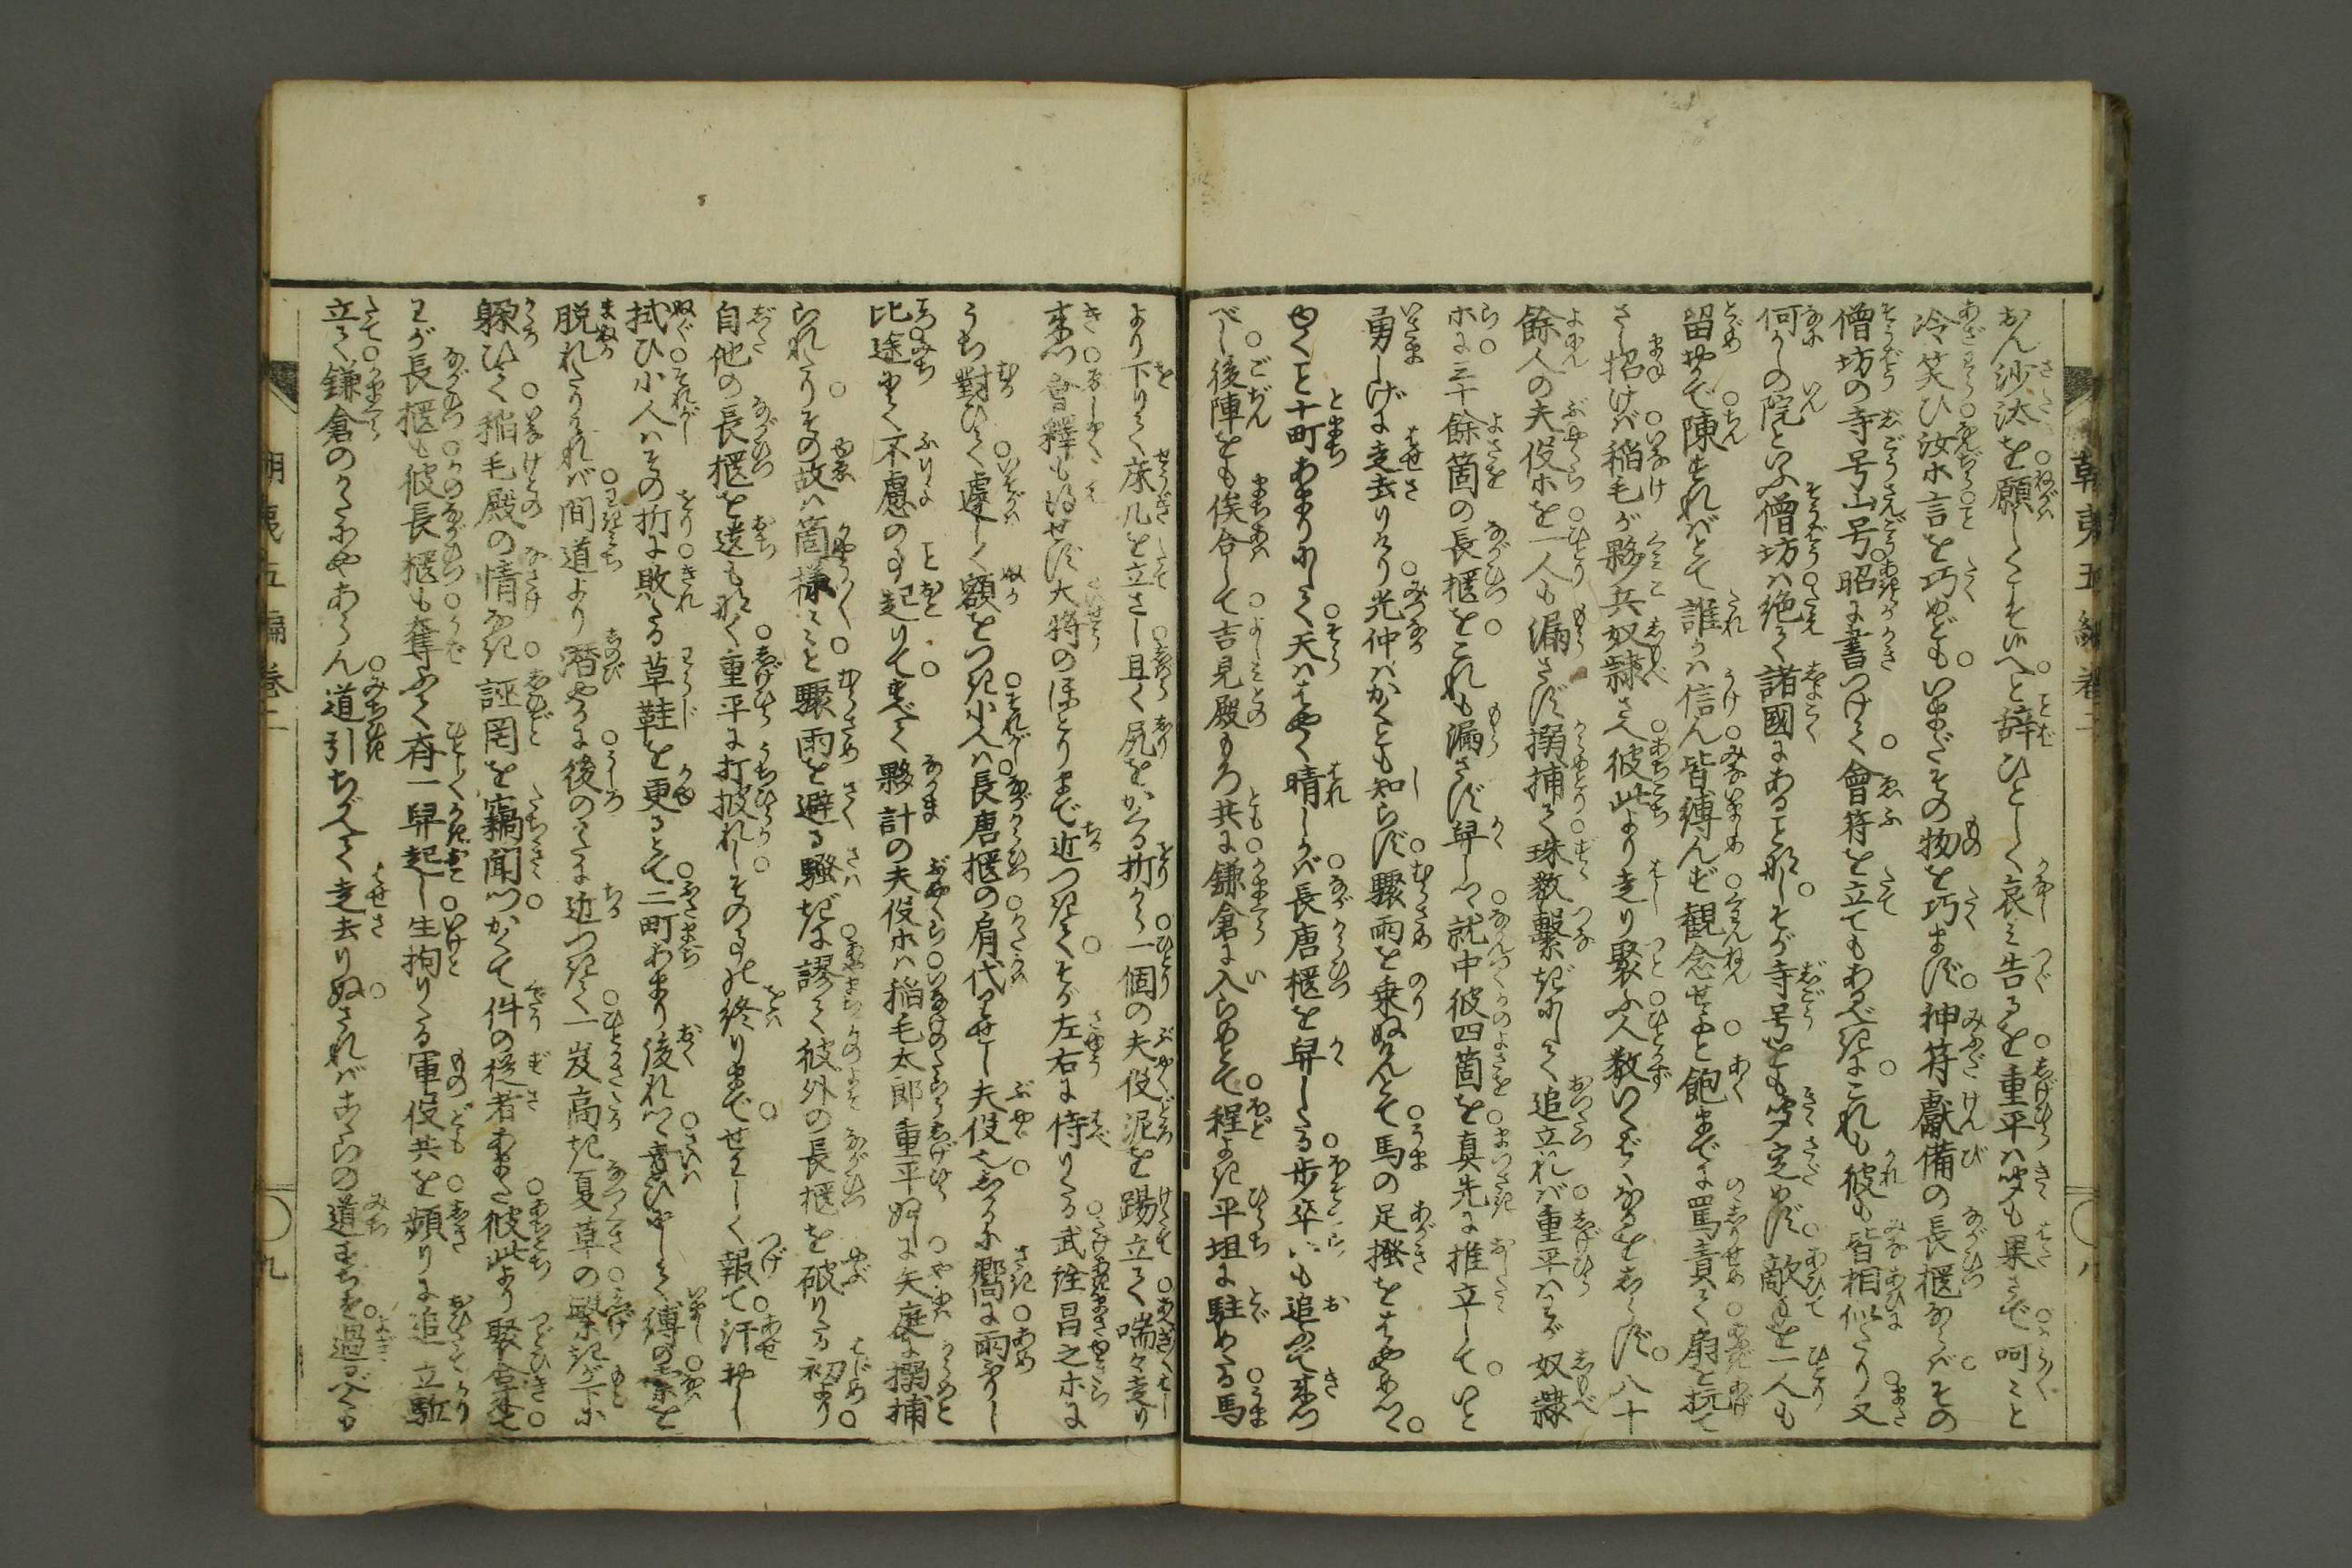 朝夷五編卷二
〇八
おん沙汰を願しくこそ候へと辞ひとしく哀み告るを重平は聞も果さで呵々と
冷笑ひ汝ホ言を巧めどもいまだその物を巧まず神符獻備の長櫃ならばその
僧坊の寺号山号昭に書つけて會符を立てもあるべきにこれも彼も皆相似たり又
何がしの院といふ僧坊は絶て諸國にあることなしそが寺号をも定めず敵を一人も
留めで陳ずればとて誰かは信ん皆縛んず観念せよと飽まてに罵責て扇を抗て
さし招けば稲毛が夥兵奴隷さへ彼此より走り聚ふ人数いくばくなるをしらず八十
餘人の夫役ホを一人も漏さず搦捕て珠数繋ぎにして追立れば重平はわが奴隷
ホに三十餘箇の長櫃をこれも漏さず舁しつ就中彼四箇を真先に推立していと
勇しげに走去りけり光仲はかくとも知らず驟雨を乗ぬけんとて馬の足掻をはやめつ
ゆくこと十町あまりにして天ははやく晴しかば長唐櫃を舁したる歩卒いも追つて来つ
べし後陣をも俟合して吉見殿もろ共に鎌倉に入らめとて程よき平坦に駐めたる馬
より下りて床几を立さし且く尻をかくる折から一個の夫役泥を踢立て喘々走り
来つ會釋も得せず大将のほとりまで近つきてそが左右に侍りたる武詮昌之ホに
うち對ひて遽しく額をつき小人は長唐櫃の肩代せし夫役也しかるに嚮に雨ふりし
比途にて不慮の事起りてすべて夥計の夫役ホは稲毛太郎重平ぬしに矢庭に搦捕
られたりその故は箇様々々と驟雨を避る騒ぎに謬て彼外の長櫃を破りたる初より
自他の長櫃を遺もなく重平に打披れしその事の終りまでせはしく報て汗おし
拭ひ小人はその折に敗たる草鞋を更るとて二町あまり後れつ幸ひにして縛の索を
脱れたりければ間道より潜やかに後のかたに近つきて一岌高き夏草の繁きが下に
躱ひて稲毛殿の情なき誣罔を竊聞つかくて件の従者あまた彼此より聚合来て
わが長櫃も彼長櫃も奪ふて斉一舁起し生拘りたる軍役共を頻りに追立駈
立て鎌倉のかたにやあらん道引ちがへて走去りぬされば此らの道すぢを過るべくも
朝夷五編卷二
〇九